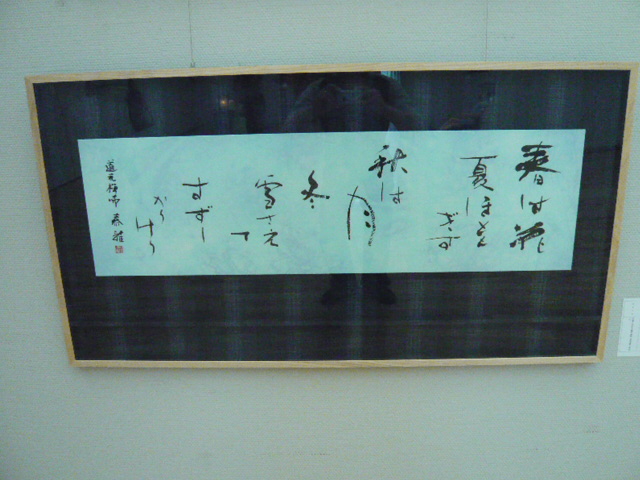 春は花
夏ほとゝ
ぎす
秋は
月
冬
雪さえ
て
すずし
かり
けり
道元禅師